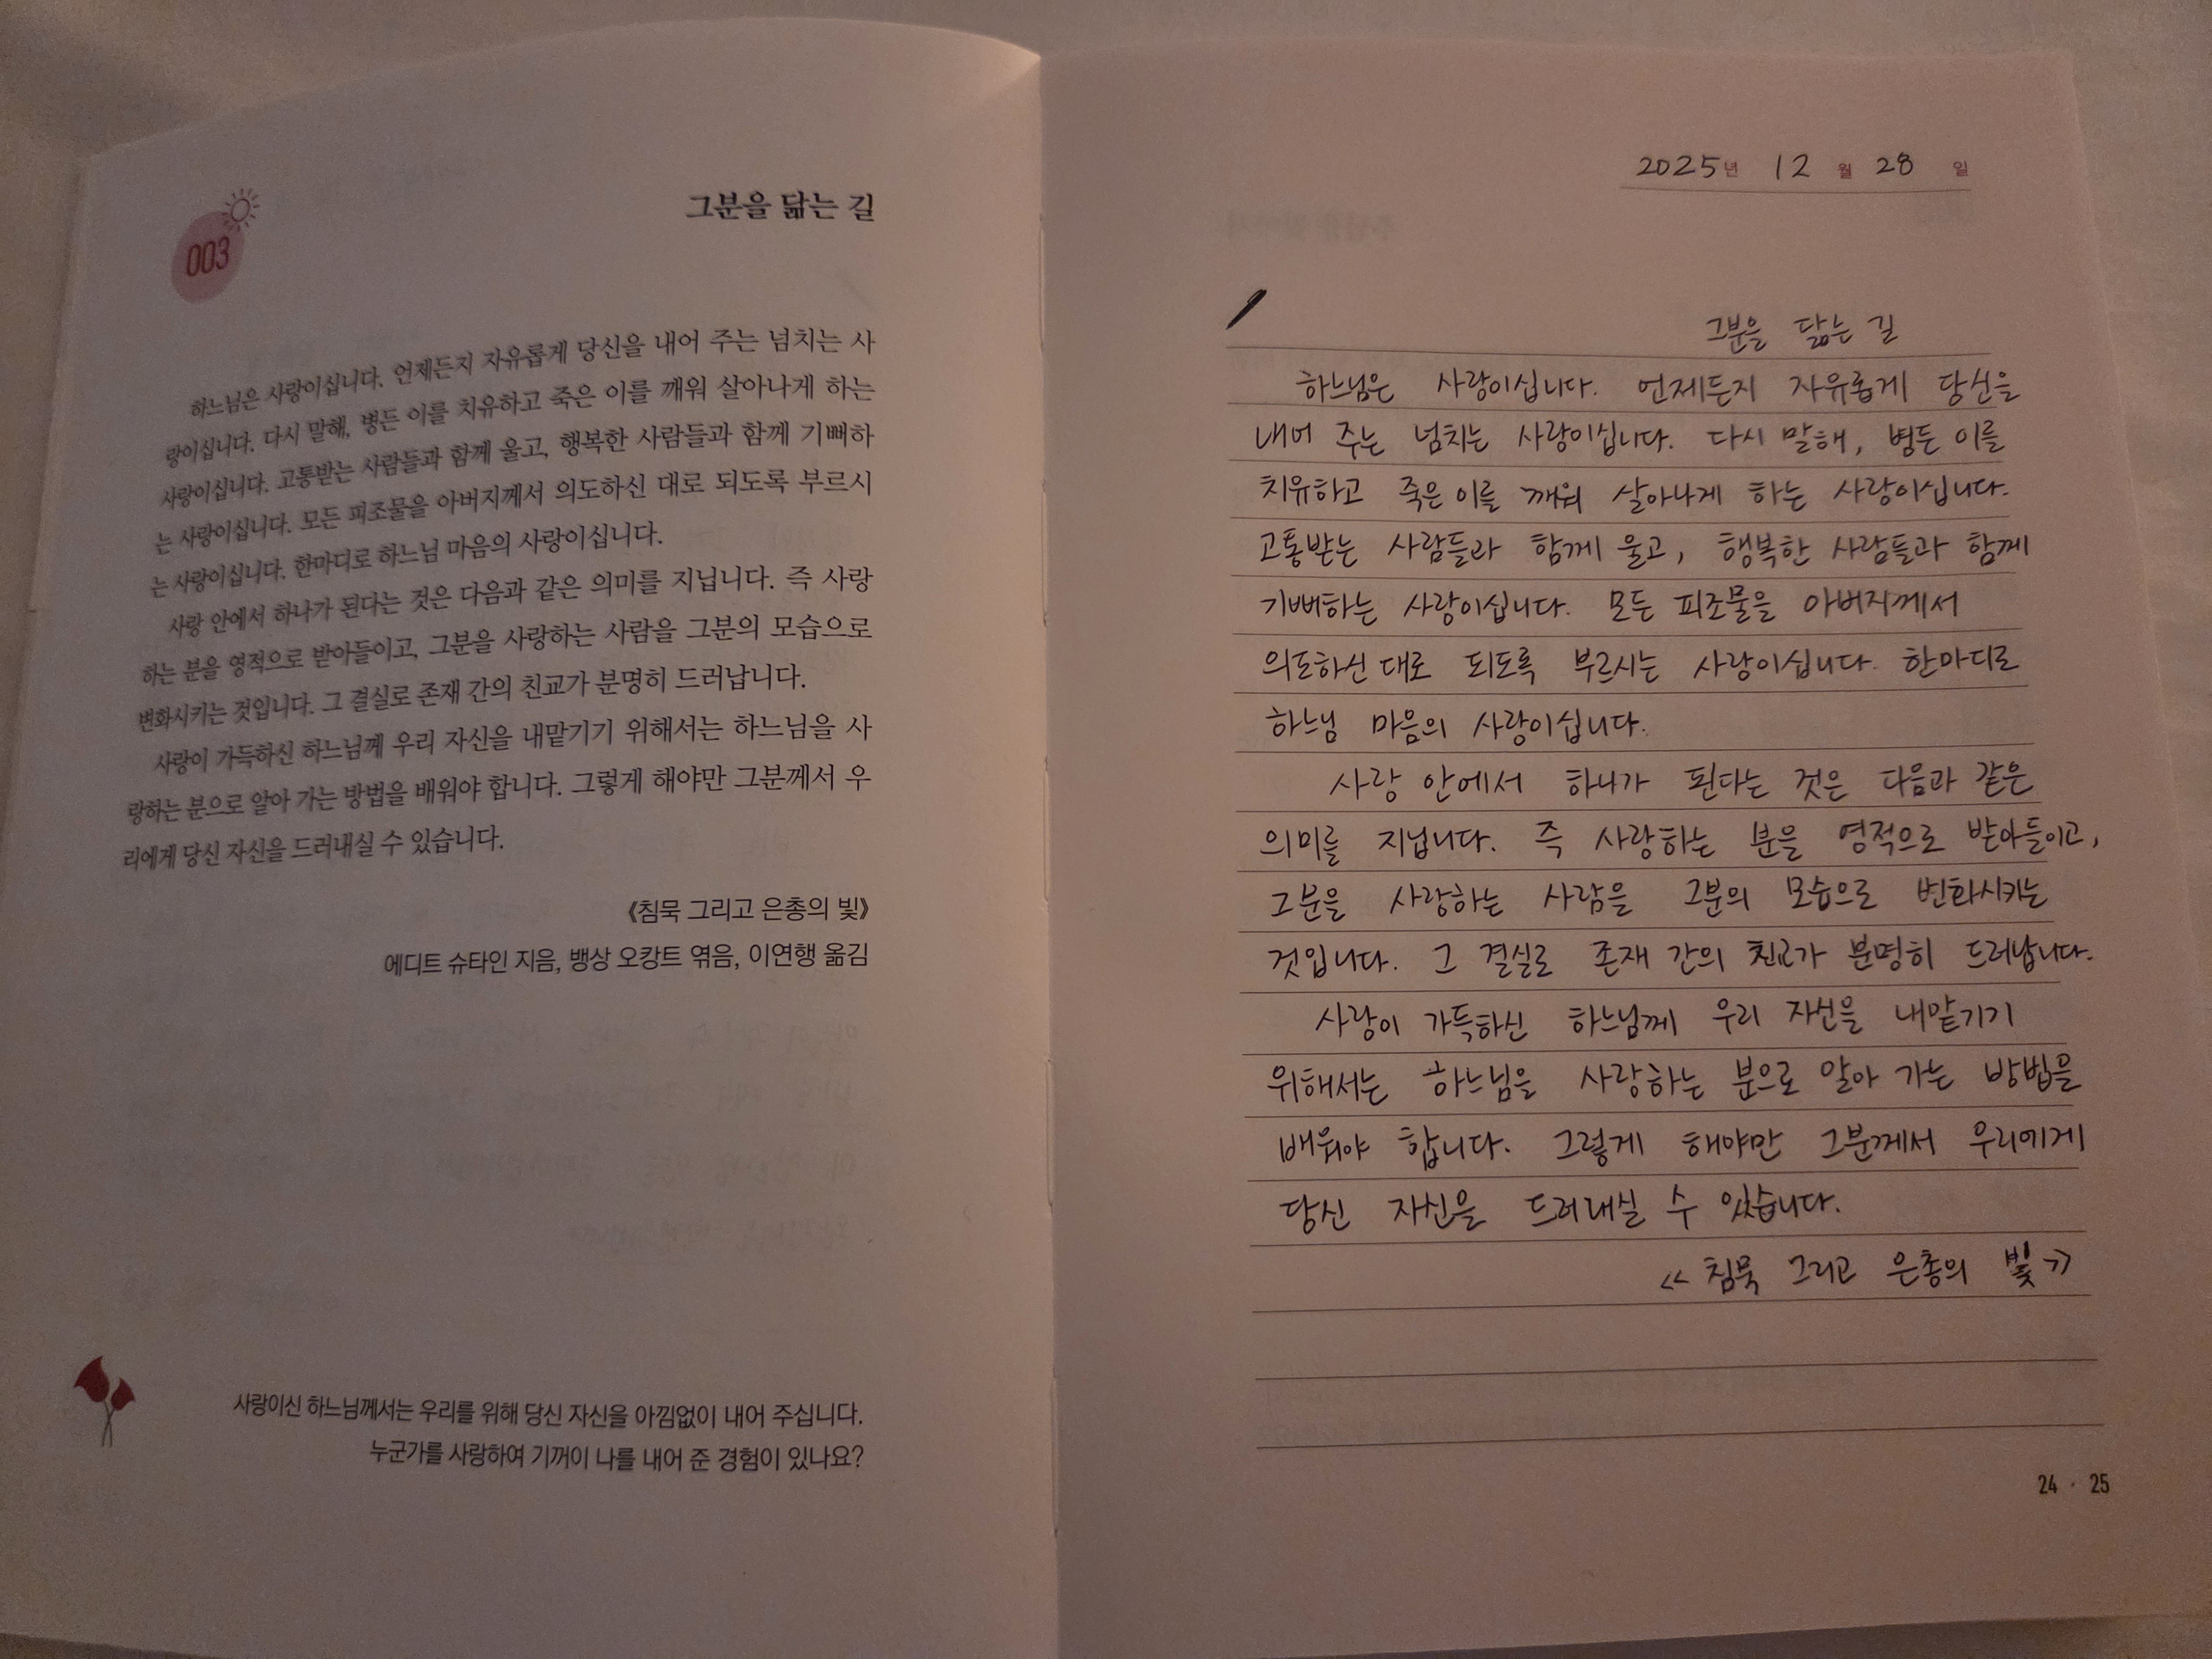 003
그분을 닮는 길
하느님은 사랑이십니다. 언제든지 자유롭게 당신을 내어 주는 넘치는 사
랑이십니다. 다시 말해, 병든 이를 치유하고 죽은 이를 깨워 살아나게 하는
사랑이십니다. 고통받는 사람들과 함께 울고, 행복한 사람들과 함께 기뻐하
는 사랑이십니다. 모든 피조물을 아버지께서 의도하신 대로 되도록 부르시
는 사랑이십니다. 한마디로 하느님 마음의 사랑이십니다.
사랑 안에서 하나가 된다는 것은 다음과 같은 의미를 지닙니다. 즉 사랑
하는 분을 영적으로 받아들이고, 그분을 사랑하는 사람을 그분의 모습으로
변화시키는 것입니다. 그 결실로 존재 간의 친교가 분명히 드러납니다.
사랑이 가득하신 하느님께 우리 자신을 내맡기기 위해서는 하느님을 사
랑하는 분으로 알아 가는 방법을 배워야 합니다. 그렇게 해야만 그분께서 우
리에게 당신 자신을 드러내실 수 있습니다.
《침묵 그리고 은총의 빛》
에디트 슈타인 지음, 뱅상 오캉트 엮음, 이연행 옮김
사랑이신 하느님께서는 우리를 위해 당신 자신을 아낌없이 내어 주십니다.
누군가를 사랑하여 기꺼이 나를 내어 준 경험이 있나요?
2025년 12월 28일
그분을 닮는 길
하느님은 사랑이십니다. 언제든지 자유롭게 당신을
내어 주는 넘치는 사랑이십니다. 다시 말해, 병든 이를
치유하고 죽은 이를 깨워 살아나게 하는 사랑이십니다.
고통받는 사람들과 함께 울고, 행복한 사람들과 함께
기뻐하는 사랑이십니다. 모든 피조물을 아버지께서
의도하신 대로 되도록 부르시는 사랑이십니다. 한마디로
하느님 마음의 사랑이십니다.
사랑 안에서 하나가 된다는 것은 다음과 같은
의미를 지닙니다. 즉 사랑하는 분을 영적으로 받아들이고,
그분을 사랑하는 사람을 그분의 모습으로 변화시키는
것입니다. 그 결실로 존재 간의 친교가 분명히 드러납니다.
사랑이 가득하신 하느님께 우리 자신을 내맡기기
위해서는 하느님을 사랑하는 분으로 알아 가는 방법을
배워야 합니다. 그렇게 해야만 그분께서 우리에게
당신 자신을 드러내실 수 있습니다.
<< 침묵 그리고 은총의 빛 >>
24 · 25